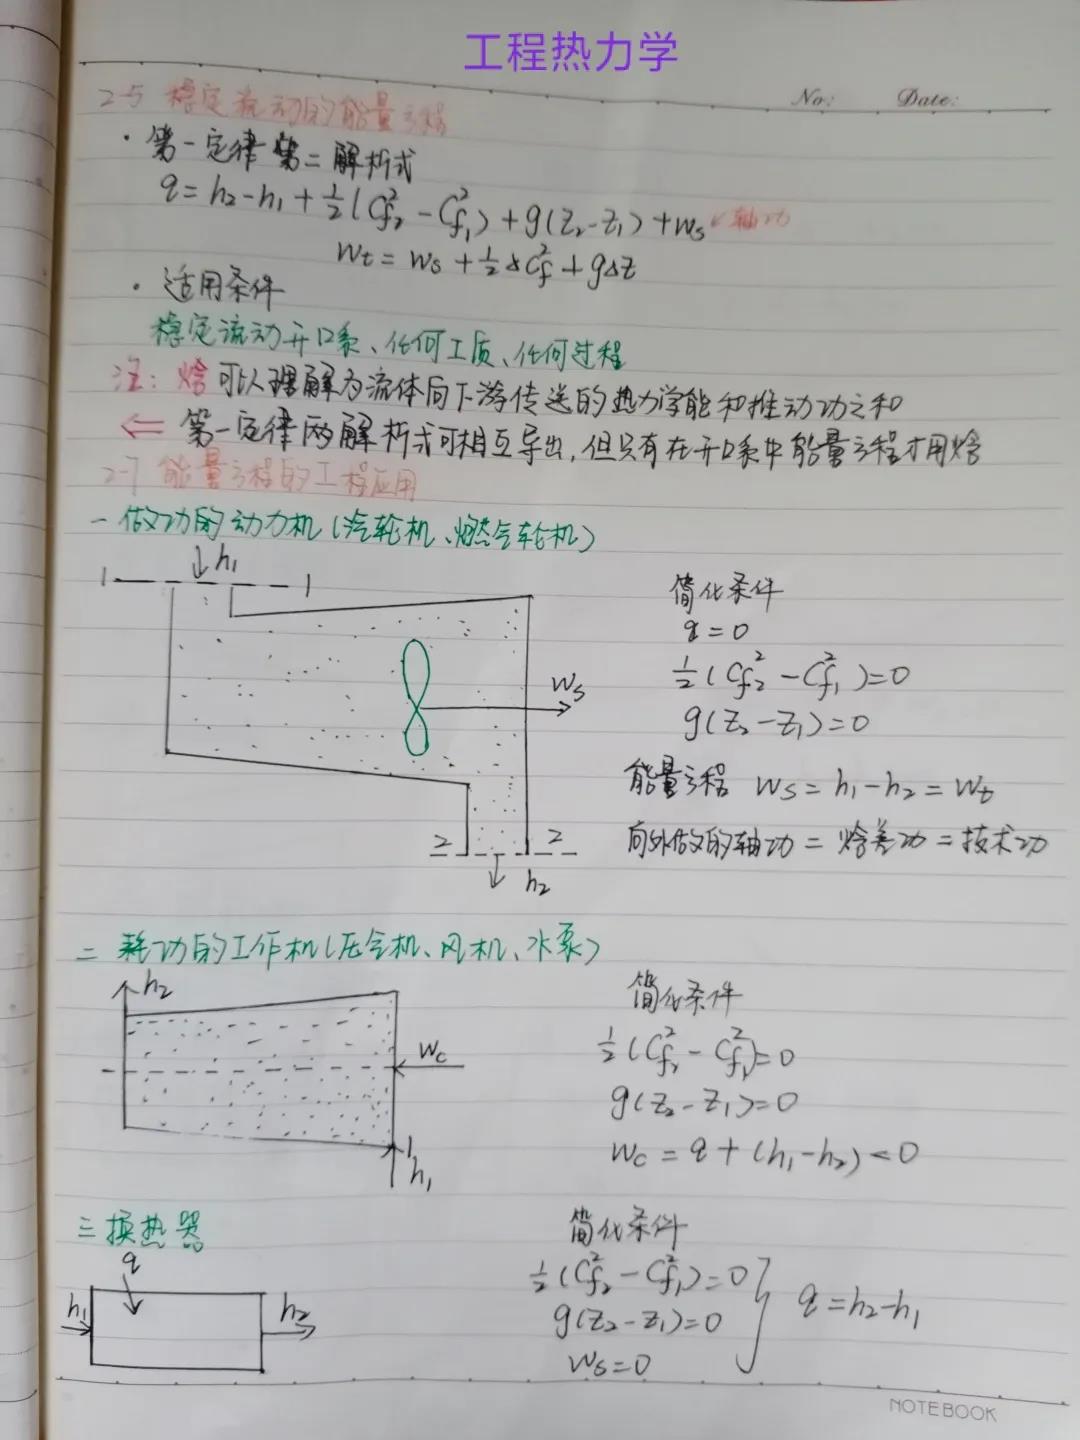 工程热力学
No: Date:
2-5 稳定流动的能量方程
· 第一定律第二解析式
q = h₂-h₁ + ½(C_f₂² - C_f₁²) + g(Z₂-Z₁) + Ws ↙轴功
Wt = Ws + ½ΔC_f² + gΔZ
· 适用条件
稳定流动开口系、任何工质、任何过程
注: 焓可以理解为流体向下游传送的热力学能和推动功之和
⇐ 第一定律两解析式可相互导出,但只有在开口系中能量方程才用焓
2-7 能量方程的工程应用
一 做功的动力机(汽轮机、燃气轮机)
↓h₁
1 1
简化条件
q = 0
½(C_f₂² - C_f₁²) = 0
Ws
g(Z₂-Z₁) = 0
能量方程 Ws = h₁-h₂ = Wt
向外做的轴功 = 焓差功 = 技术功
2 2
↓ h₂
二 耗功的工作机(压气机、风机、水泵)
h₂
简化条件
½(C_f₂² - C_f₁²) = 0
Wc
g(Z₂-Z₁) = 0
Wc = q + (h₁-h₂) < 0
h₁
三 换热器
简化条件
q
½(C_f₂² - C_f₁²) = 0
h₁ h₂
g(Z₂-Z₁) = 0 } q = h₂-h₁
Ws = 0
NOTEBOOK